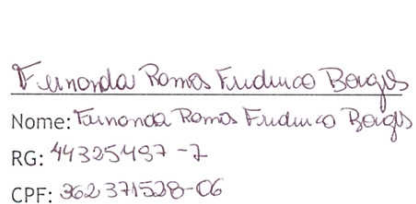 Fernanda Ramos Frederico Borges
Nome: Fernanda Ramos Frederico Borges
RG: 44325497-7
CPF: 362371528-06